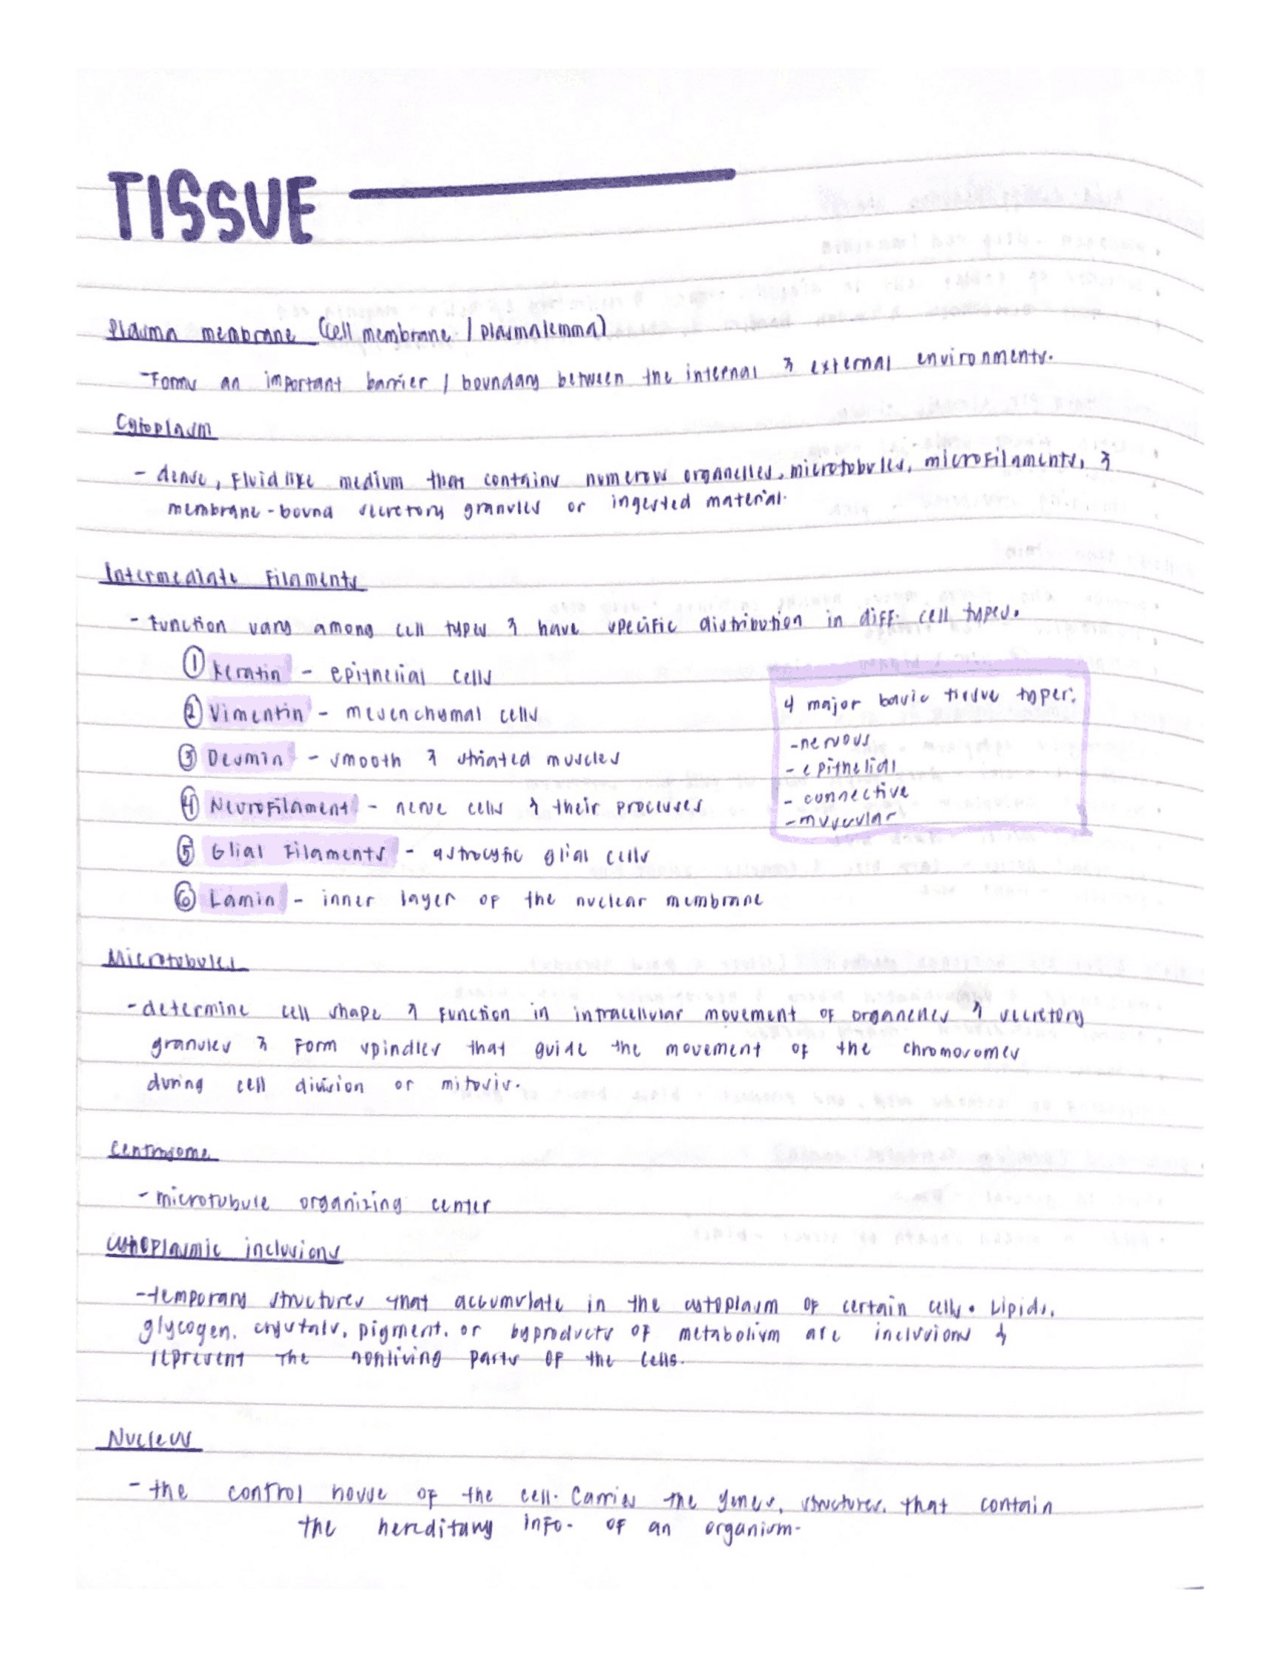 TISSUE
Plasma membrane (cell membrane / plasmalemma)
- Forms an important barrier / boundary between the internal & external environments.
Cytoplasm
- dense, fluid like medium that contains numerous organelles, microtubules, microfilaments, &
membrane-bound secretory granules or ingested material.
Intermediate Filaments
- Function vary among cell types & have specific distribution in diff. cell types.
① Keratin - epithelial cells
② Vimentin - mesenchymal cells
③ Desmin - smooth & striated muscles
④ Neurofilament - nerve cells & their processes
⑤ Glial Filaments - astrocytic glial cells
⑥ Lamin - inner layer of the nuclear membrane
4 major basic tissue types:
- nervous
- epithelial
- connective
- muscular
Microtubules
- determine cell shape & function in intracellular movement of organelles & secretory
granules & form spindles that guide the movement of the chromosomes
during cell division or mitosis.
Centrosome
- microtubule organizing center
Cytoplasmic inclusions
- temporary structures that accumulate in the cytoplasm of certain cells. Lipids,
glycogen, crystals, pigment, or byproducts of metabolism are inclusions &
represent the nonliving parts of the cells.
Nucleus
- the control house of the cell. Carries the genes, structures that contain
the hereditary info. of an organism.